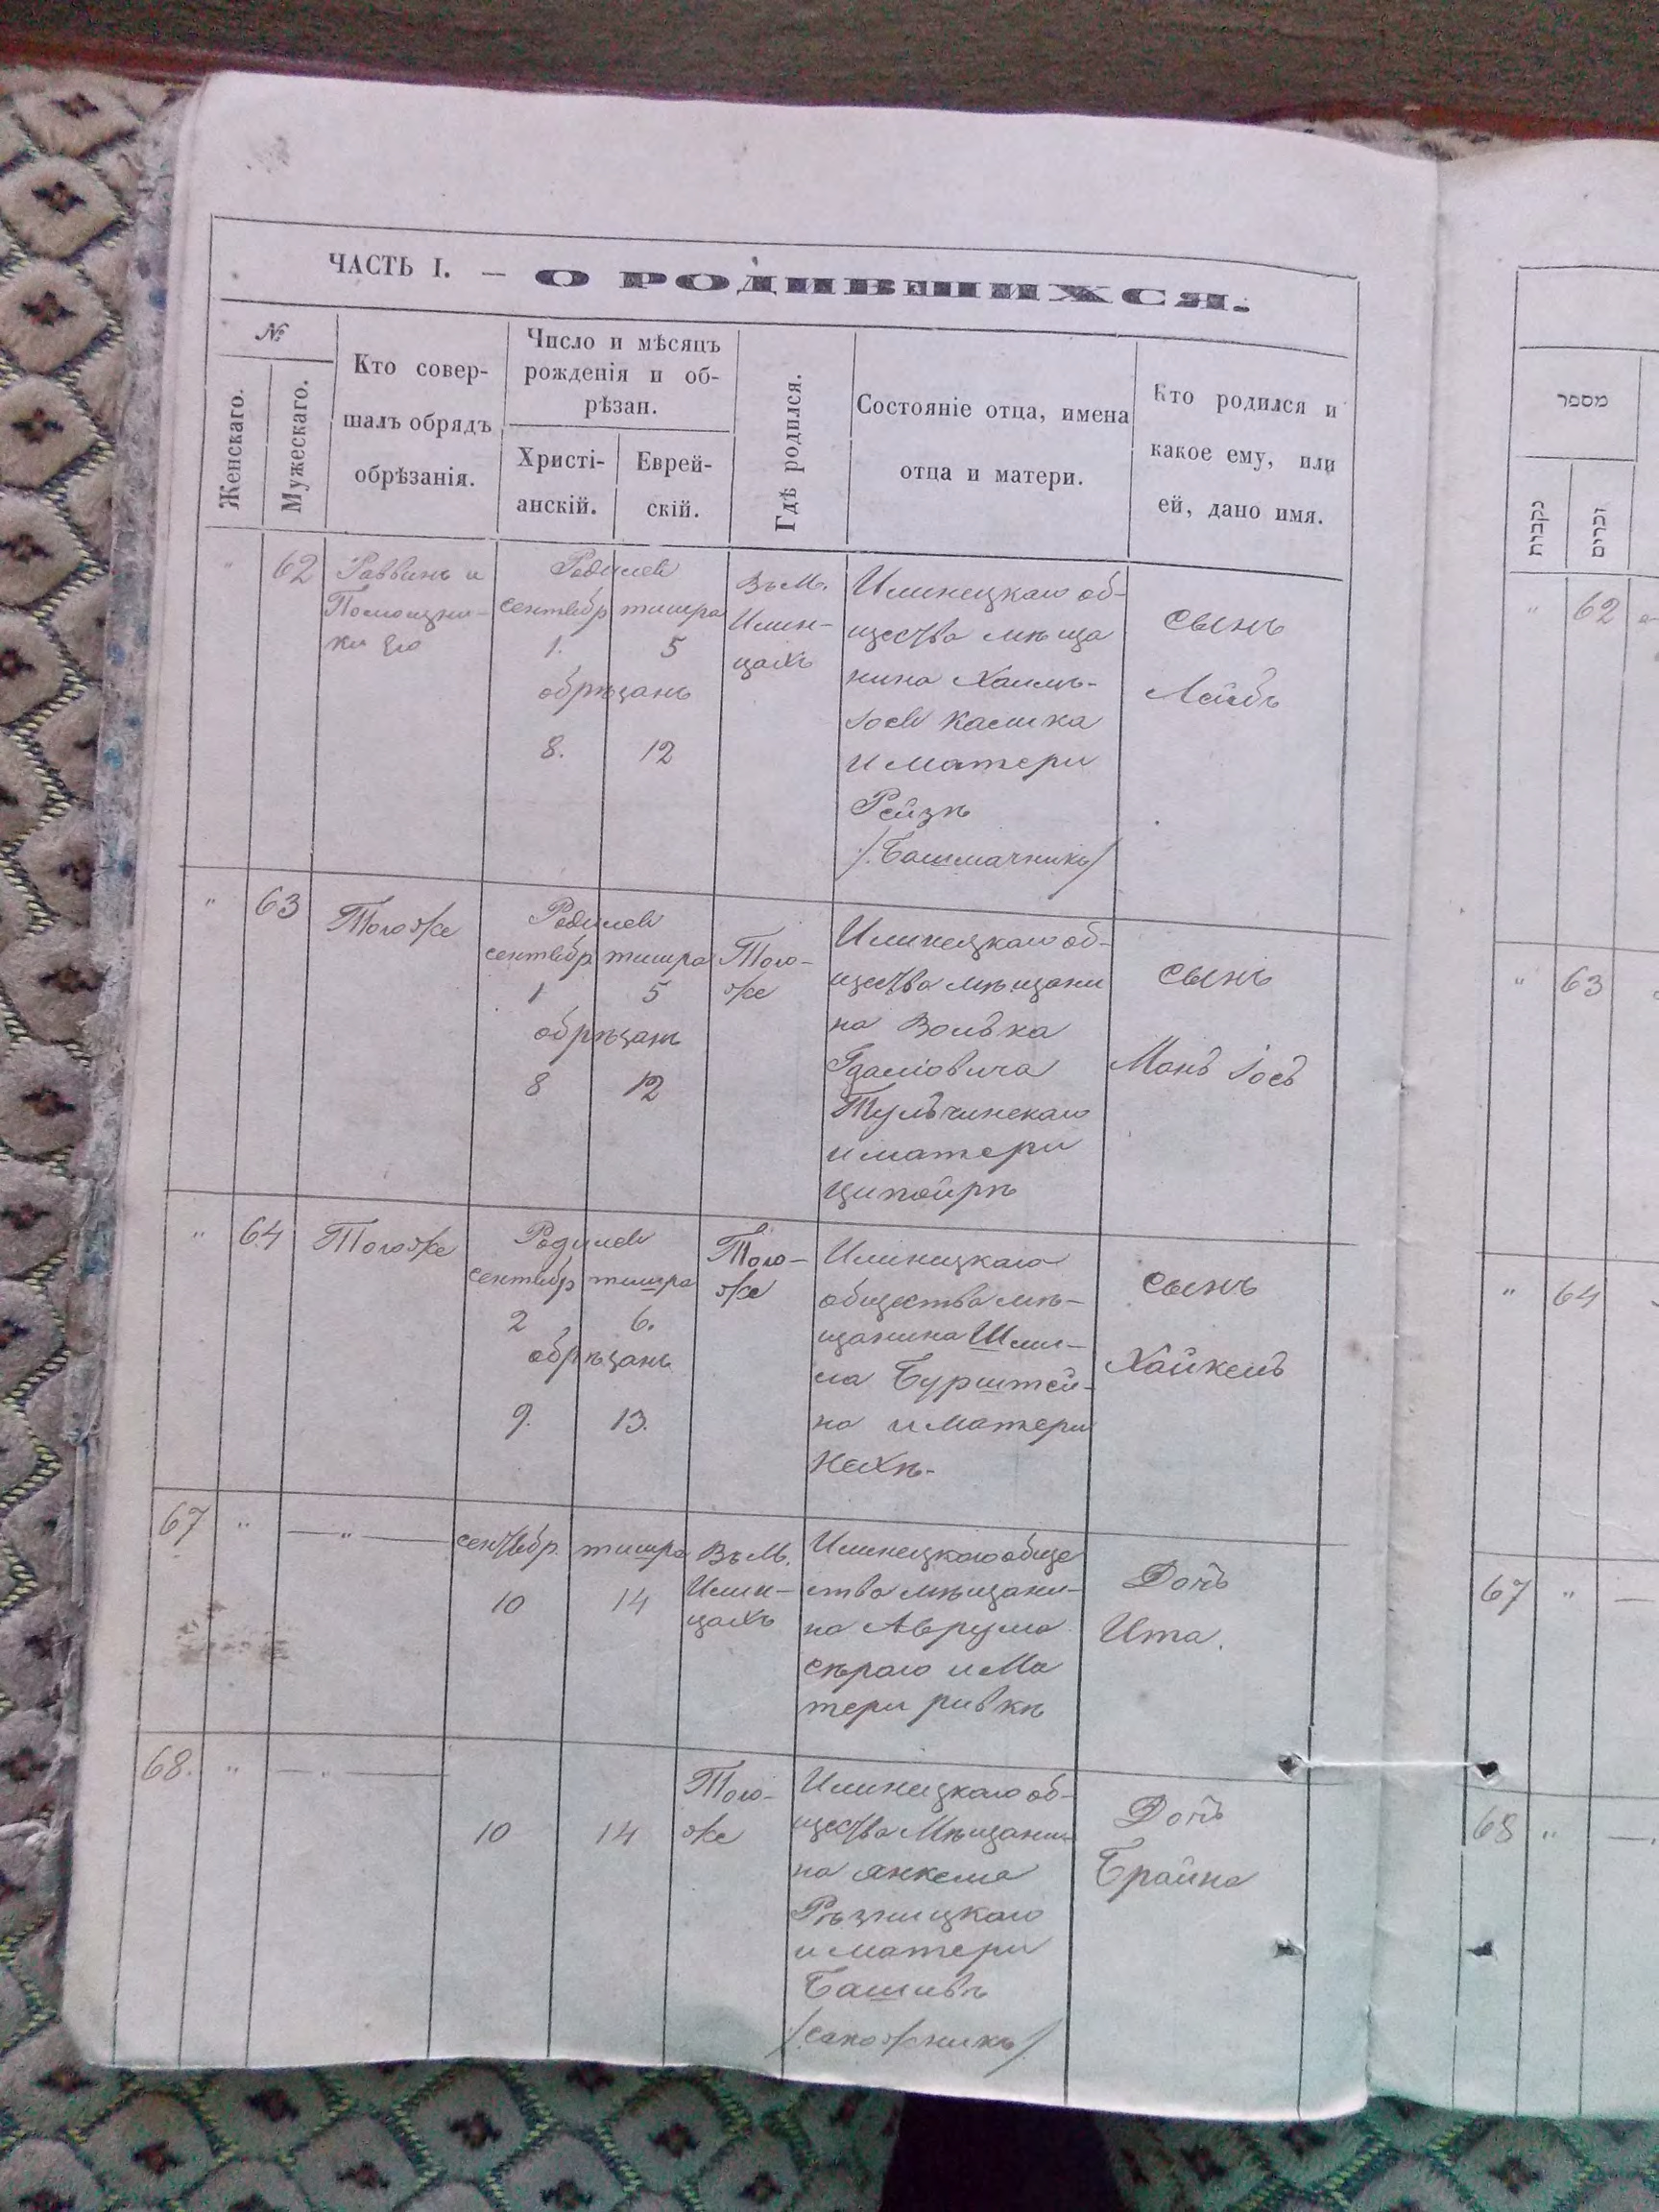 ЧАСТЬ I. — О РОДИВШИХСЯ.
№
Женскаго.
Мужескаго.
Кто совер-
шалъ обрядъ
обрѣзанія.
Число и мѣсяцъ
рожденія и об-
рѣзан.
Христі-
анскій.
Еврей-
скій.
Гдѣ родился.
Состояніе отца, имена
отца и матери.
Кто родился и
какое ему, или
ей, дано имя.
" 62
Раввинъ и
Помощни-
ки его
Родился
сентябр тишра
1. 5
обрѣзанъ
8. 12
Въ М.
Илин-
цахъ
Илинецкаго об-
щества мѣща
нина Хаимъ-
Іося
и матери
Рейзѣ
/.Башмачникъ/
сынъ
Лейбъ
" 63
Тогоже
Родился
сентябр тишра
1 5
обрѣзанъ
8 12
Того-
же
Илинецкаго об-
щества мѣщани
на Волька
Гдаліовича
Тульчинскаго
и матери
Ципойрѣ
сынъ
Манъ Іось
" 64
Тогоже
Родился
сентябр тишра
2 6.
обрѣзанъ
9. 13.
Того-
же
Илинецкаго
общества мѣ-
щанина Шми-
ла Бурштей-
на и матери
Нехѣ.
сынъ
Хайкель
67 " — " —
сентябр. тишра
10 14
Въ М.
Илин-
цахъ
Илинецкаго обще
ства мѣщани-
на Аврума
сѣраго и Ма
тери ривкѣ
Дочь
Ита.
68. " — " —
10 14
Того-
же
Илинецкаго об-
щества Мѣщани-
на янкеля
Рѣзницкаго
и матери
Башивѣ
/сапожникъ/
Дочь
Брайна
מספר
נקבות
זכרים
" 62
" 63
" 64
67 " —
68 " —